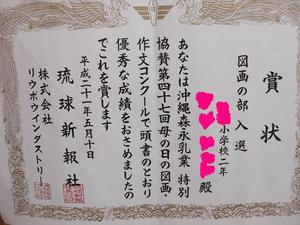 賞状
図画の部 入選
小学校二年
殿
あなたは沖縄森永乳業 特別
協賛第四十七回母の日の図画・
作文コンクールで頭書のとおり
優秀な成績をおさめましたの
でこれを賞します
平成二十一年五月十日
琉球新報社
株式会社
リウボウインダストリー